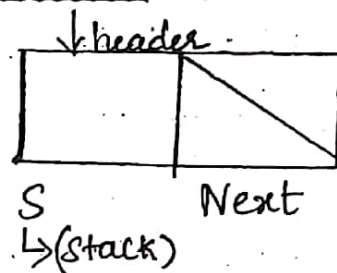 ↓ header
S Next
↳ (stack)